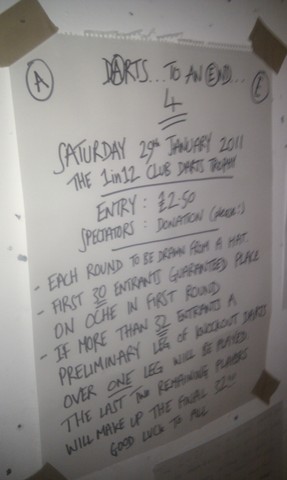 A DARTS... TO AN END... E
4
SATURDAY 29th JANUARY 2011
THE 1in12 CLUB DARTS TROPHY
ENTRY : £2.50
SPECTATORS : DONATION
- EACH ROUND TO BE DRAWN FROM A HAT.
- FIRST 30 ENTRANTS GUARANTEED PLACE
ON OCHE IN FIRST ROUND
- IF MORE THAN 32 ENTRANTS A
PRELIMINARY LEG OF KNOCKOUT DARTS
OVER ONE LEG WILL BE PLAYED.
THE LAST TWO REMAINING PLAYERS
WILL MAKE UP THE FINAL 32...
GOOD LUCK TO ALL